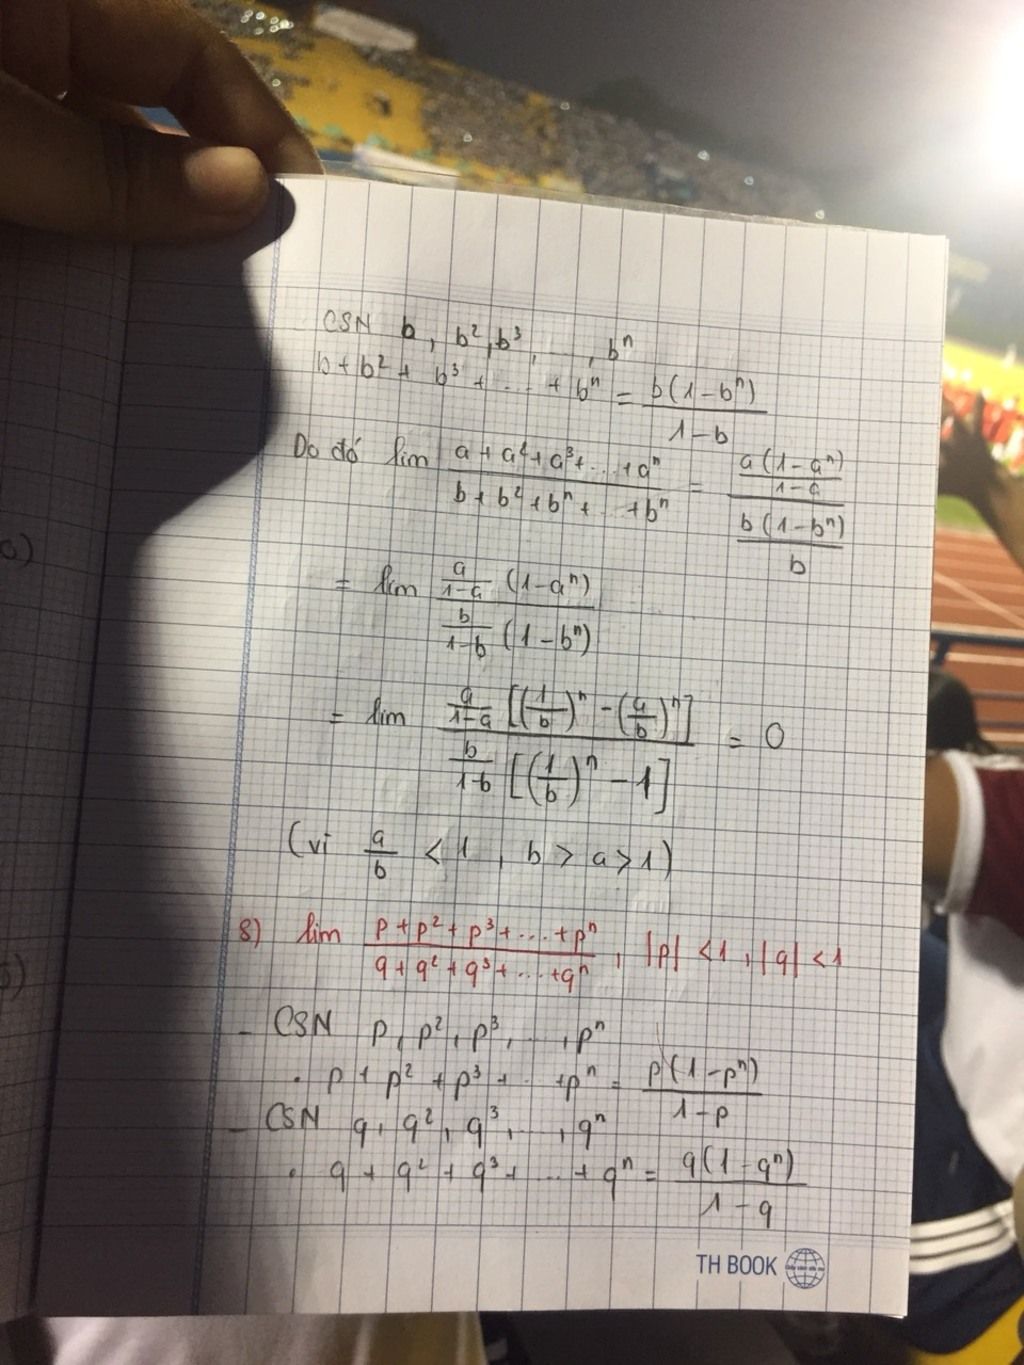 CSN b, b², b³, ..., bⁿ
b + b² + b³ + ... + bⁿ = b(1-bⁿ)/(1-b)
Do đó lim (a + a² + a³ + ... + aⁿ)/(b + b² + bⁿ + ... + bⁿ) = (a(1-aⁿ)/(1-a))/(b(1-bⁿ)/b)
= lim (a/(1-a) (1-aⁿ))/(b/(1-b) (1-bⁿ))
= lim (a/(1-a) [(1/b)ⁿ - (a/b)ⁿ])/(b/(1-b) [(1/b)ⁿ - 1]) = 0
(vì a/b < 1, b > a > 1)
8) lim (p + p² + p³ + ... + pⁿ)/(q + q² + q³ + ... + qⁿ), |p| < 1, |q| < 1
- CSN p, p², p³, ..., pⁿ
. p + p² + p³ + ... + pⁿ = p(1-pⁿ)/(1-p)
- CSN q, q², q³, ..., qⁿ
. q + q² + q³ + ... + qⁿ = q(1-qⁿ)/(1-q)
TH BOOK